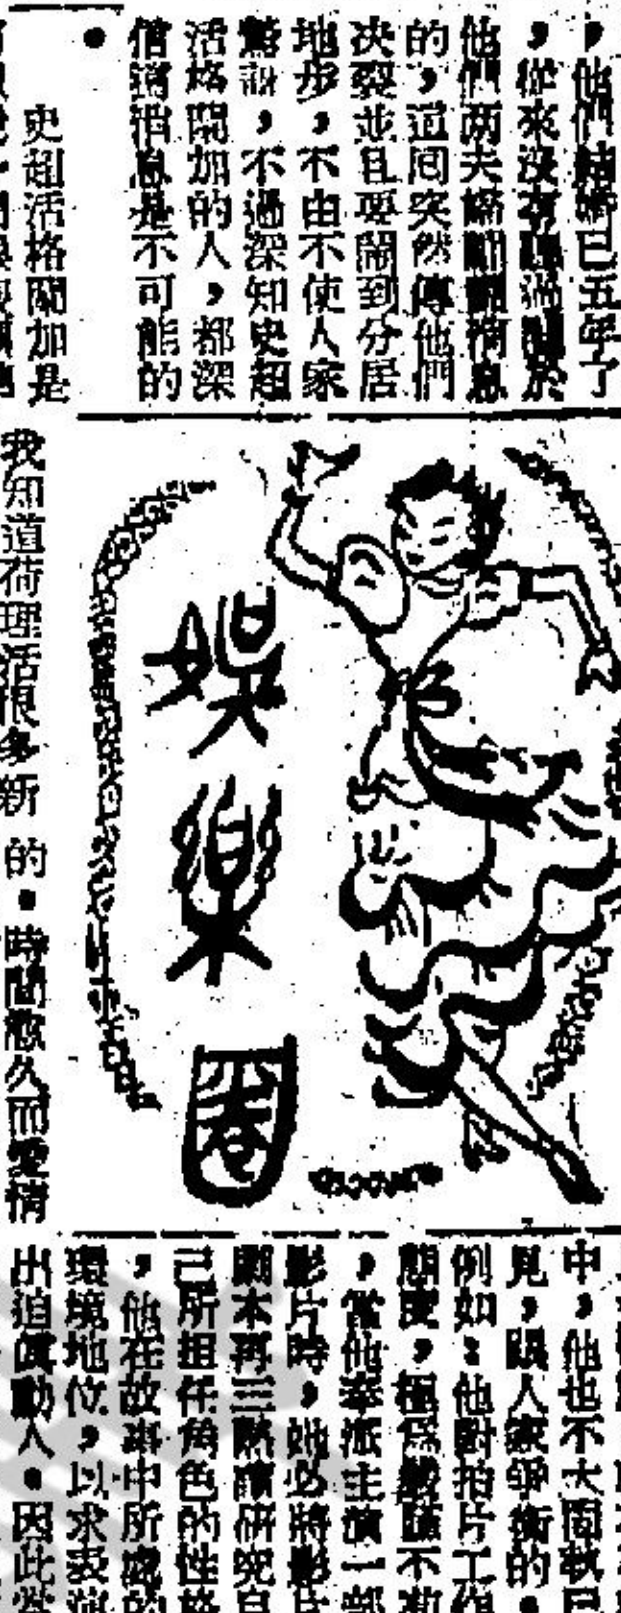 ，他們結婚已五年了
，從來沒有聽過關於
他們兩夫婦鬧翻消息
的，這回突然傳他們
決裂並且要鬧到分居
地步，不由不使人家
驚訝，不過深知史超
活格關加的人，都深
信這消息是不可能的
。
史超活格關加是
娛樂圈
我知道荷理活很多新
的。時間愈久而愛情
中，他也不大固執己
見，跟人家爭衡的。
例如：他對拍片工作
態度，極為嚴謹不苟
，當他奉派主演一部
影片時，她必將影片
劇本再三熟讀研究自
己所担任角色的性格
，他在故事中所處的
環境地位，以求表演
出迫真動人。因此當